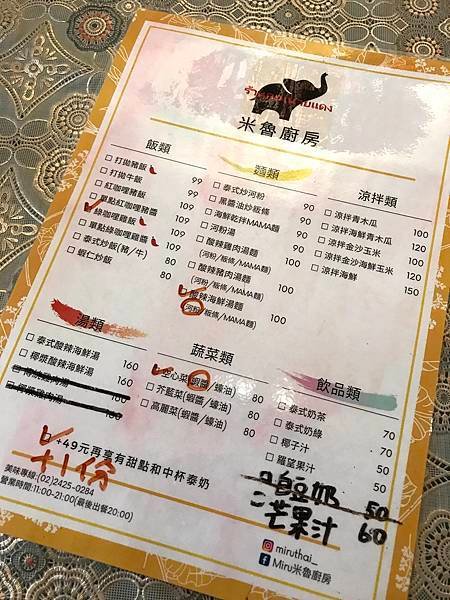 米魯廚房
飯類
打拋豬飯 99
打拋牛飯 99
紅咖哩豬飯 109
單點紅咖哩豬醬 109
綠咖哩雞飯 109
單點綠咖哩雞醬 109
泰式炒飯(豬/牛) 80
蝦仁炒飯 80
麵類
泰式炒河粉 90
黑醬油炒粄條 90
海鮮乾拌MAMA麵 90
河粉湯 90
酸辣雞肉湯麵 100
(河粉/粄條/MAMA麵)
酸辣豬肉湯麵 100
(河粉/粄條/MAMA麵)
酸辣海鮮湯麵 100
(河粉/粄條/MAMA麵)
涼拌類
涼拌青木瓜 100
涼拌海鮮青木瓜 120
涼拌金沙玉米 100
涼拌金沙海鮮玉米 120
涼拌海鮮 150
湯類
泰式酸辣海鮮湯 160
椰漿酸辣海鮮湯 160
蔬菜類
空心菜(蝦醬/蠔油) 80
芥藍菜(蝦醬/蠔油) 80
高麗菜(蝦醬/蠔油) 80
飲品類
泰式奶茶 70
泰式奶綠 70
椰子汁 50
羅望果汁 50
白豆奶 50
芒果汁 60
+49元再享有甜點和中杯泰奶
+1份
美味專線:(02)2425-0284
營業時間:11:00-21:00(最後出餐20:00)
miruthai_
Miru米魯廚房